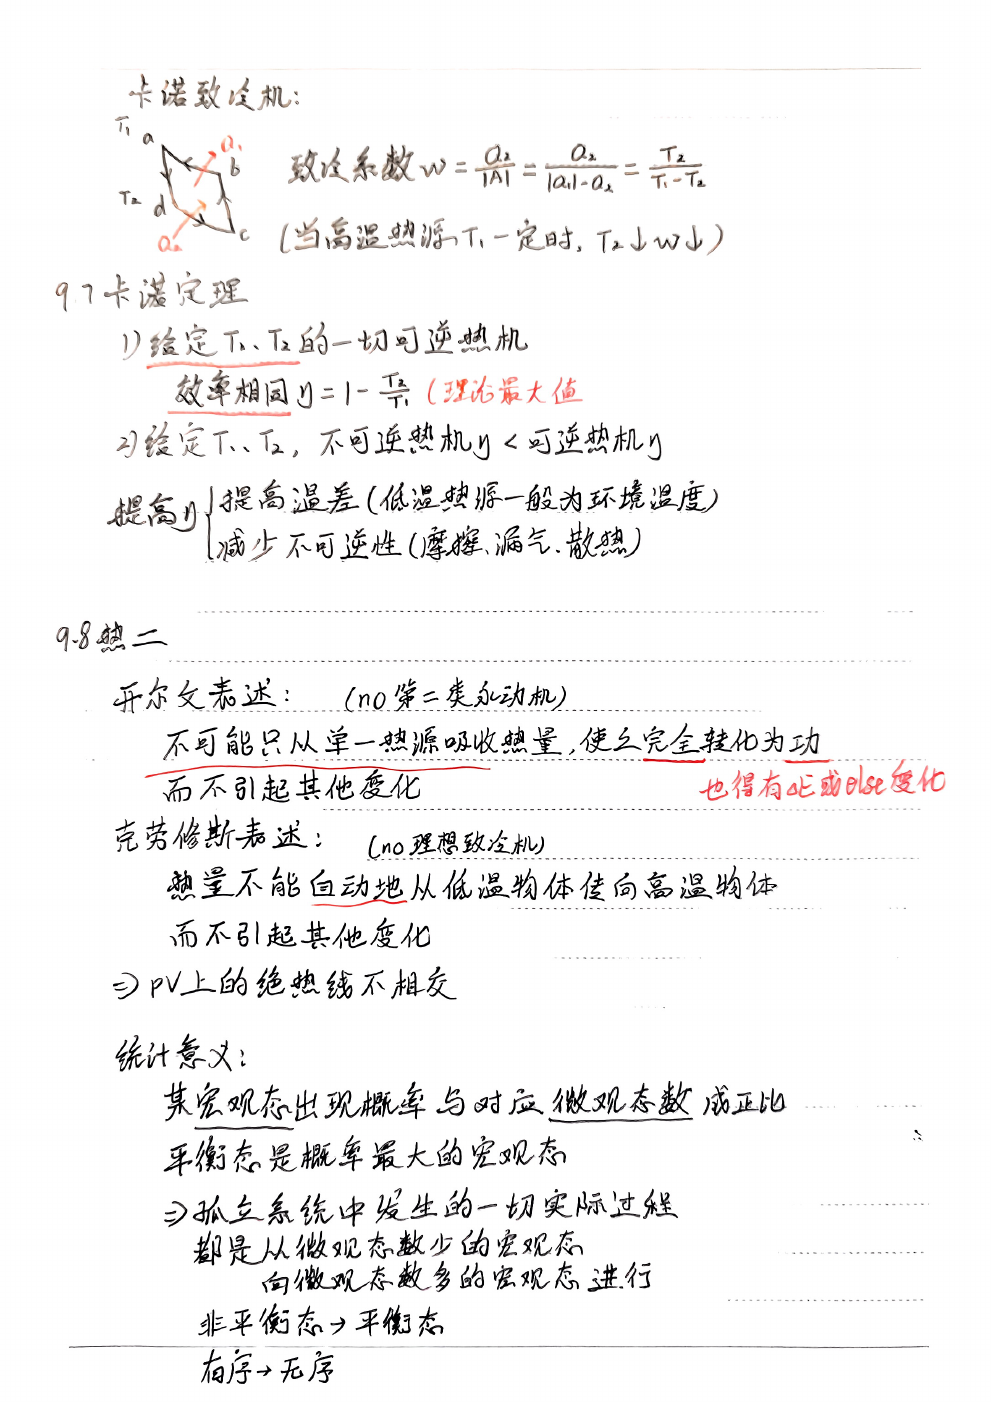 卡诺致冷机:
T₁ a Q₁ b
T₂ d Q₂ c
致冷系数 w = Q₂/|A| = Q₂/(|Q₁|-Q₂) = T₂/(T₁-T₂)
(当高温热源T₁一定时, T₂↓w↓)
9.7卡诺定理
1)给定T₁、T₂的一切可逆热机
效率相同 η=1-T₂/T₁ (理论最大值
2)给定T₁、T₂, 不可逆热机η<可逆热机η
提高η{提高温差(低温热源一般为环境温度)
减少不可逆性(摩擦、漏气、散热)
9.8热二
开尔文表述: (no第二类永动机)
不可能只从单一热源吸收热量,使之完全转化为功
而不引起其他变化
也得有ΔE或else变化
克劳修斯表述: (no理想致冷机)
热量不能自动地从低温物体传向高温物体
而不引起其他变化
⇒ pV上的绝热线不相交
统计意义:
某宏观态出现概率与对应微观态数成正比
平衡态是概率最大的宏观态
⇒孤立系统中发生的一切实际过程
都是从微观态数少的宏观态
向微观态数多的宏观态进行
非平衡态→平衡态
有序→无序